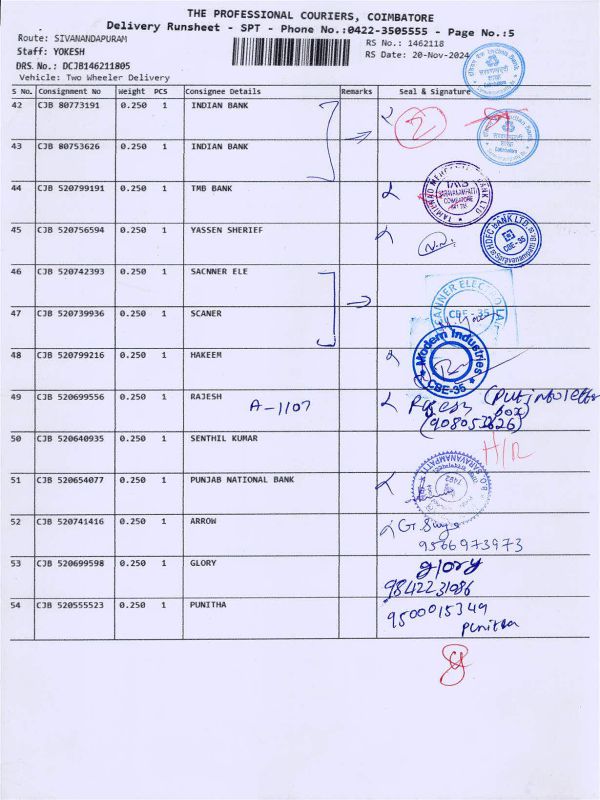 THE PROFESSIONAL COURIERS, COIMBATORE
Delivery Runsheet - SPT - Phone No.:0422-3505555 - Page No.:5
Route: SIVANANDAPURAM
RS No.: 1462118
Staff: YOKESH
RS Date: 20-Nov-2024
DRS.No.: DCJB146211805
Vehicle: Two Wheeler Delivery
S No. Consignment No Weight PCS Consignee Details Remarks Seal & Signature
42 CJB 80773191 0.250 1 INDIAN BANK
43 CJB 80753626 0.250 1 INDIAN BANK
44 CJB 520799191 0.250 1 TMB BANK
TAMILNAD MERCANTILE BANK LTD
TMB
SARAVANAMPATTI
COIMBATORE
45 CJB 520756594 0.250 1 YASSEN SHERIEF
HDFC BANK LTD.
CBE-35
Saravanampatti
46 CJB 520742393 0.250 1 SACNNER ELE
SCANNER ELECTRO
CBE - 35
47 CJB 520739936 0.250 1 SCANER
48 CJB 520799216 0.250 1 HAKEEM
Modern Industries
CBE-35
49 CJB 520699556 0.250 1 RAJESH
A-1107
Rajesh (Put into letter box)
50 CJB 520640935 0.250 1 SENTHIL KUMAR
H/R
51 CJB 520654077 0.250 1 PUNJAB NATIONAL BANK
B.O. SARAVANAMPATTI
52 CJB 520741416 0.250 1 ARROW
9566973973
53 CJB 520699598 0.250 1 GLORY
glory
9842231986
54 CJB 520555523 0.250 1 PUNITHA
9500015349
punitha